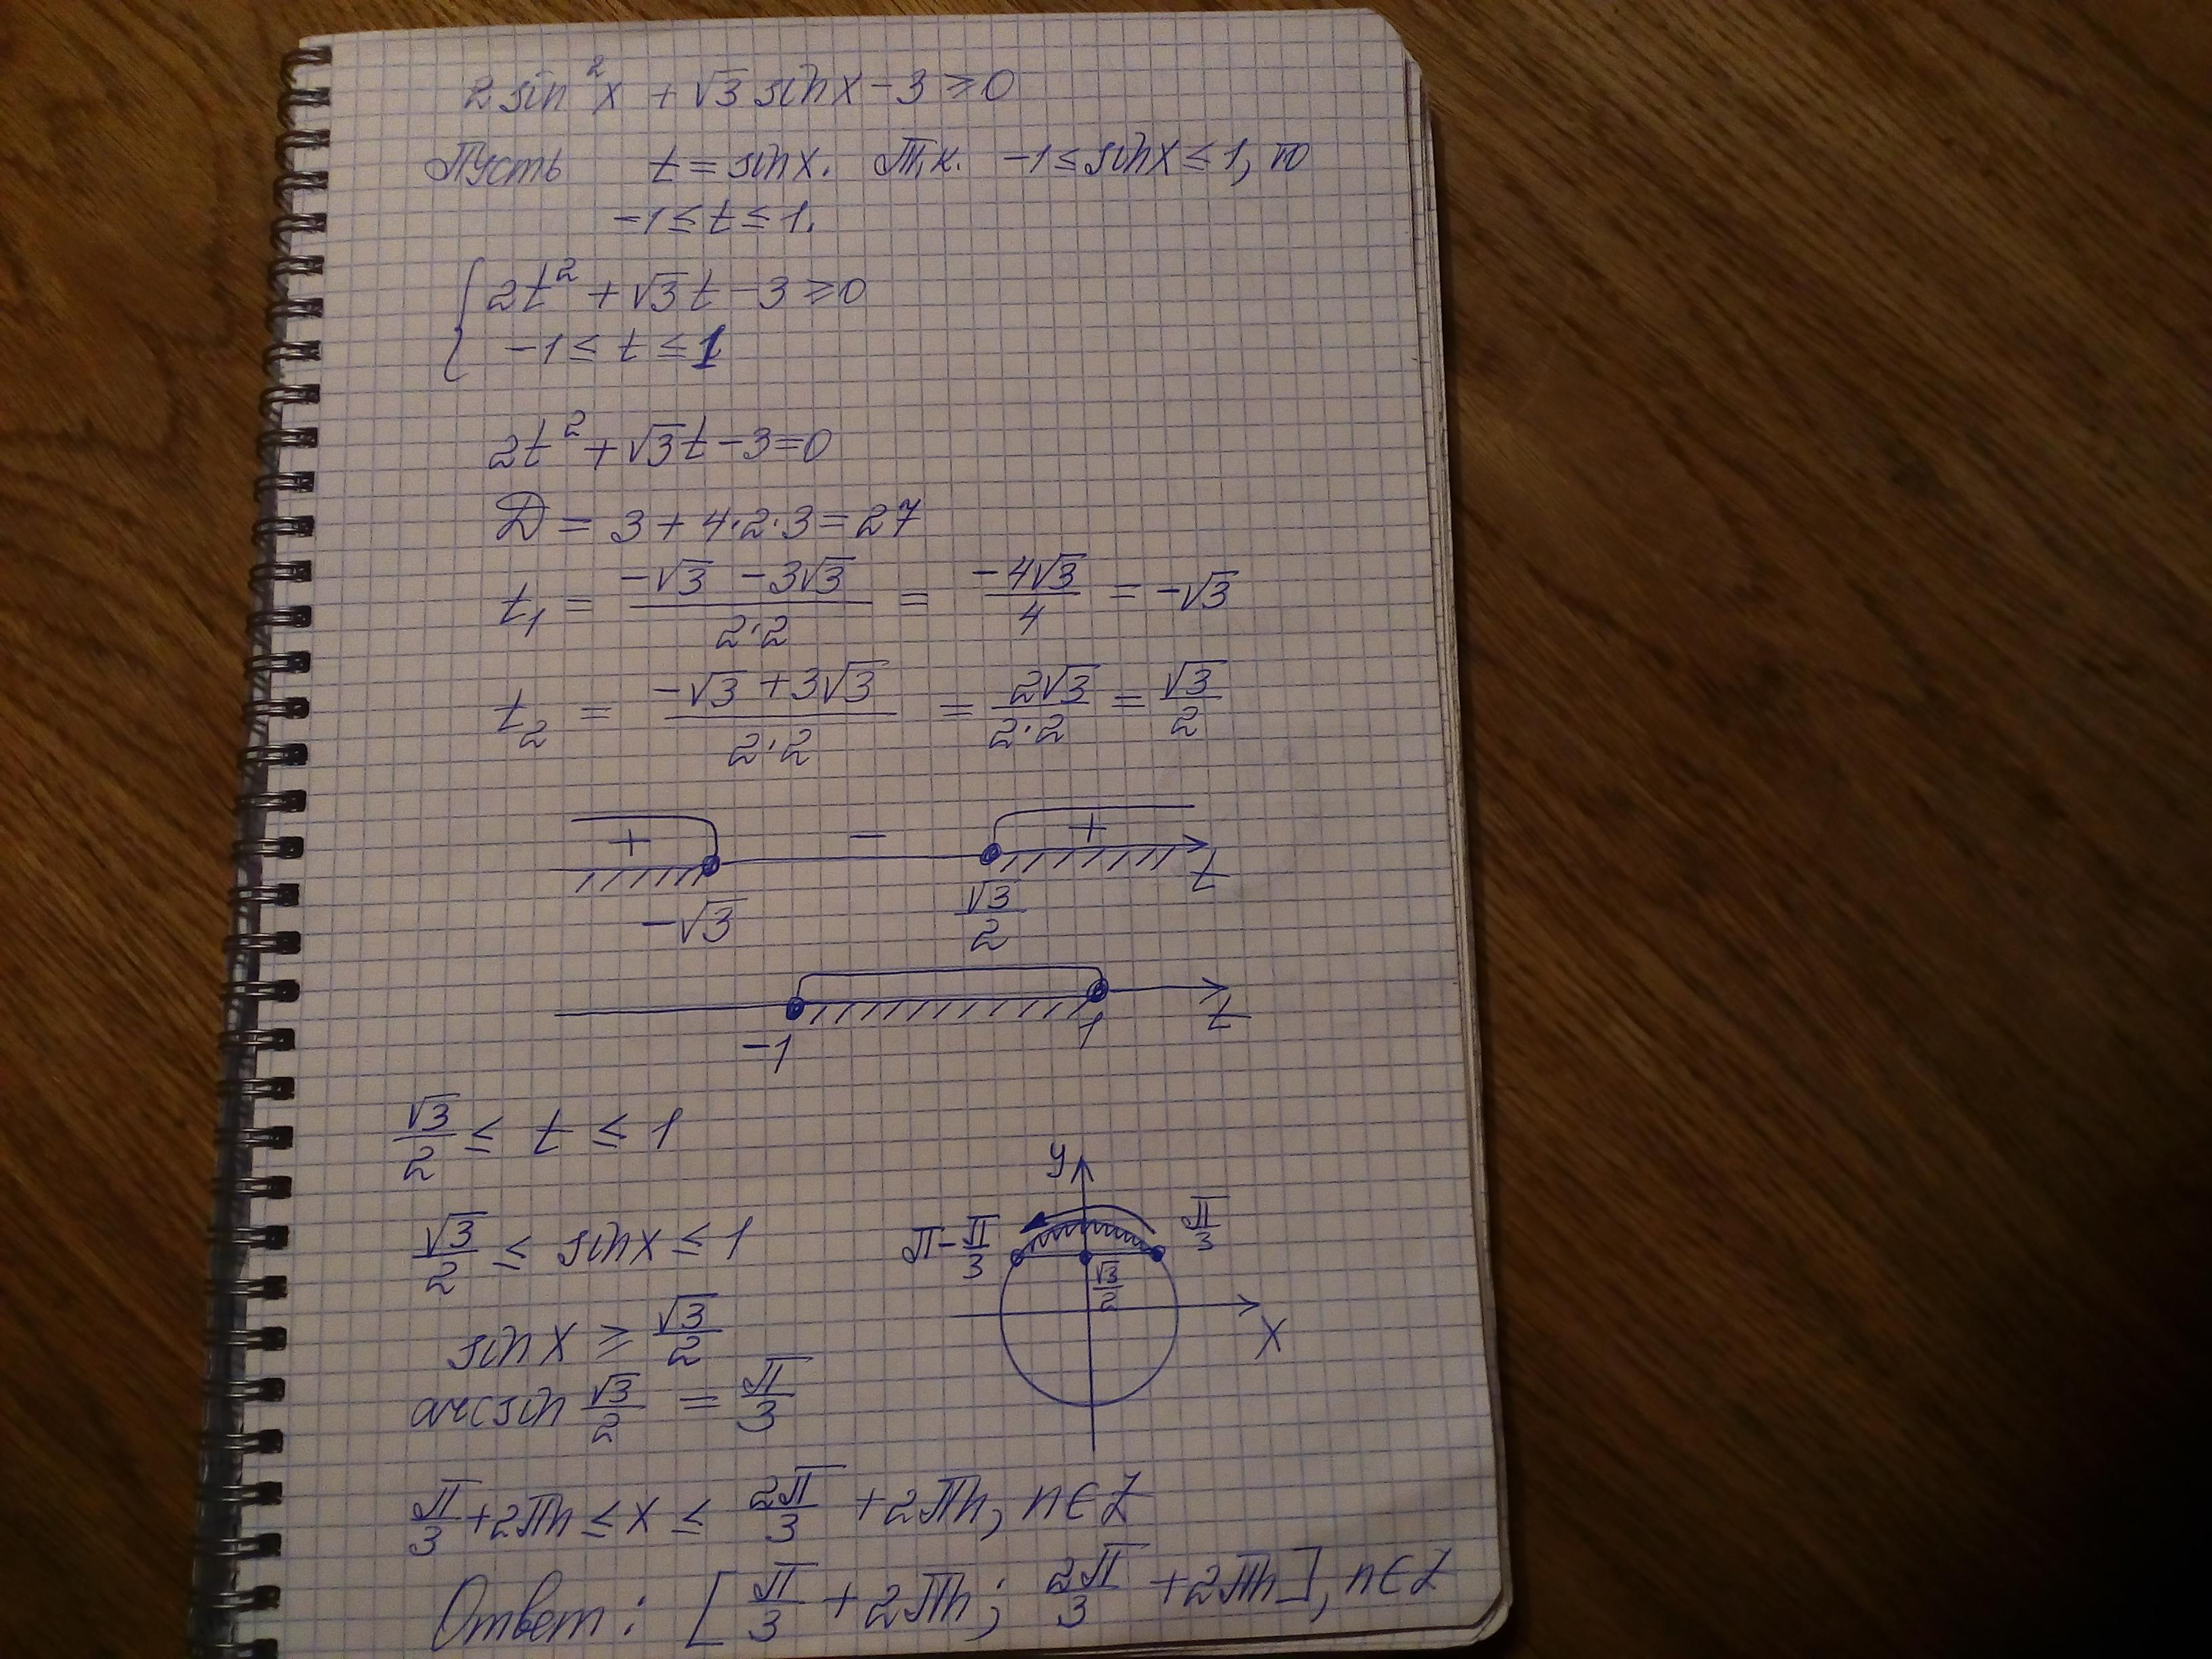 2 sin²x + √3 sin x - 3 ≥ 0
Пусть t = sin x. Т.к. -1 ≤ sin x ≤ 1, то
-1 ≤ t ≤ 1.
{ 2t² + √3 t - 3 ≥ 0
-1 ≤ t ≤ 1
2t² + √3 t - 3 = 0
D = 3 + 4·2·3 = 27
t₁ = (-√3 - 3√3)/(2·2) = (-4√3)/4 = -√3
t₂ = (-√3 + 3√3)/(2·2) = (2√3)/(2·2) = √3/2
+ - + t
-√3 √3/2
-1 1 t
√3/2 ≤ t ≤ 1
√3/2 ≤ sin x ≤ 1
sin x ≥ √3/2
arcsin √3/2 = π/3
y
π - π/3 π/3
√3/2
x
π/3 + 2πn ≤ x ≤ 2π/3 + 2πn, n ∈ Z
Ответ: [π/3 + 2πn; 2π/3 + 2πn], n ∈ Z